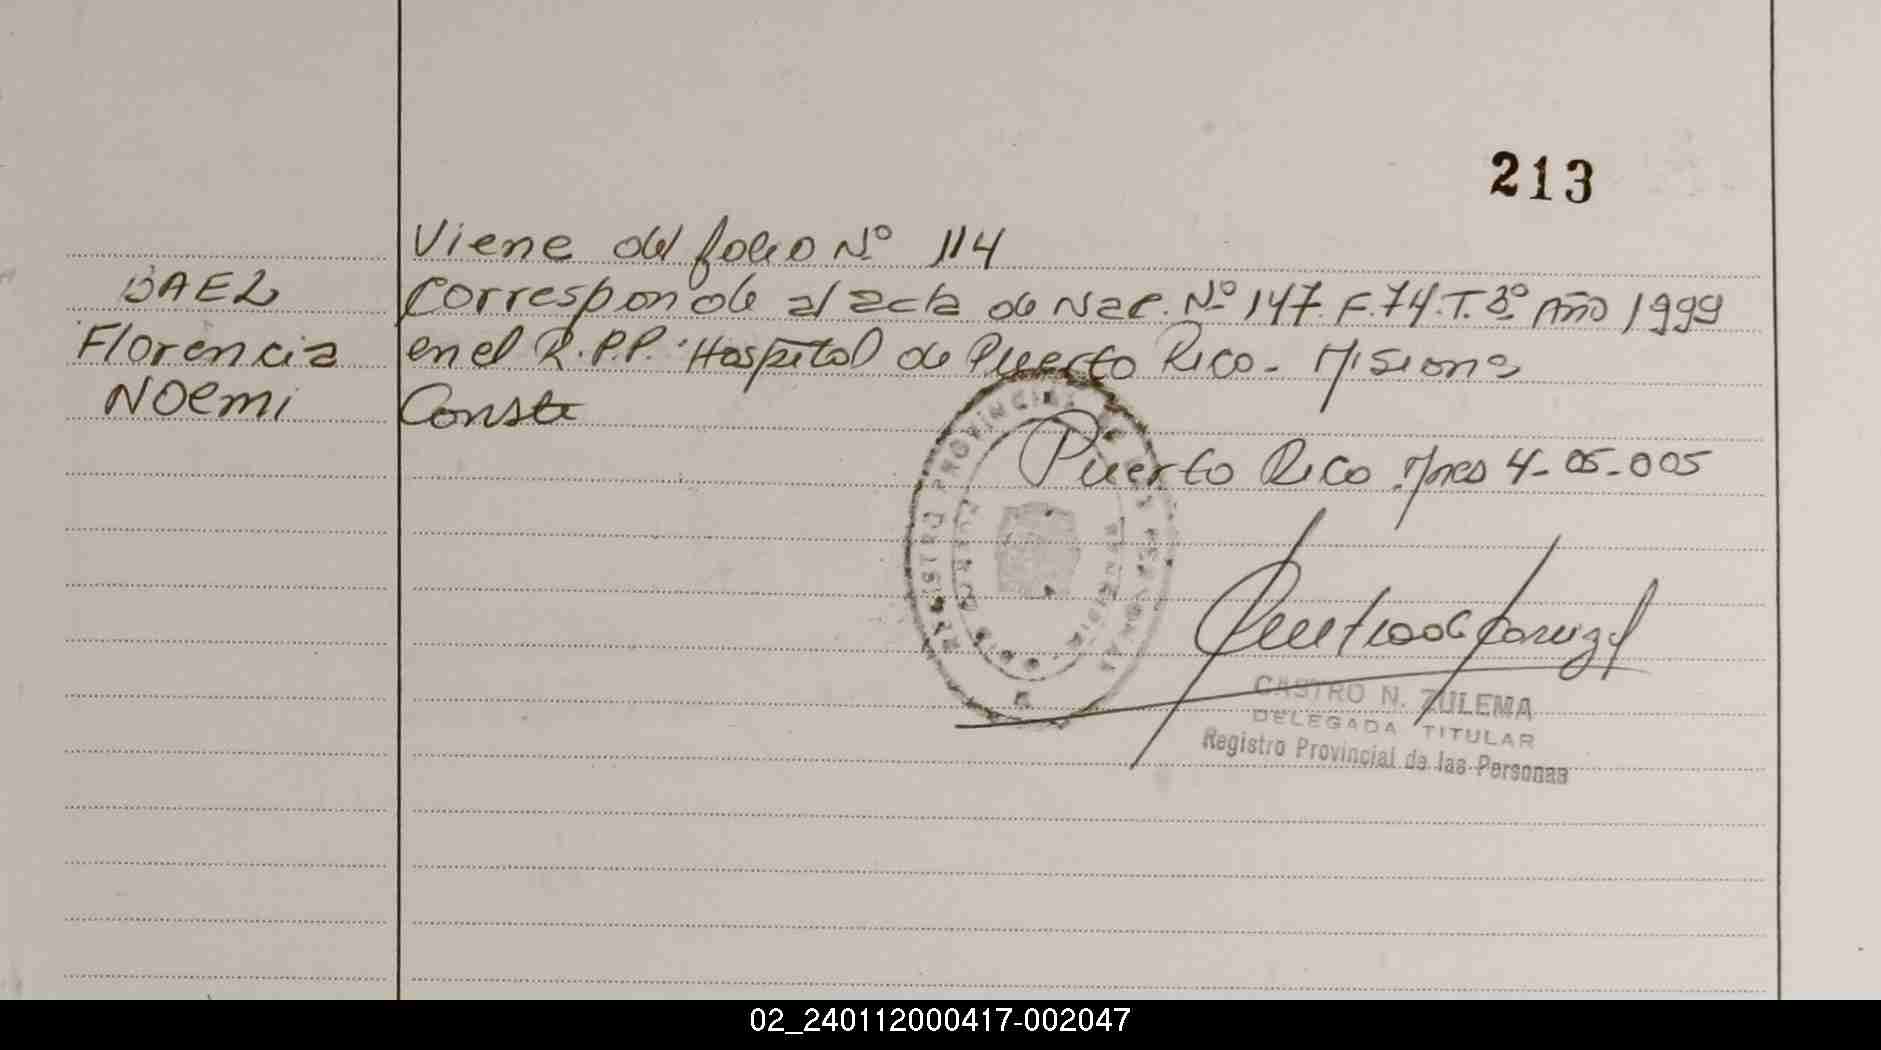 213
Viene del folio Nº 114
BAEZ
Corresponde al acta de Nac. Nº 147. F. 74. T. 3º. Año 1999
Florencia
en el R.P.P. Hospital de Puerto Rico - Misiones
NOemi
Conste
Puerto Rico Mnes 4-05-005
REGISTRO PROVINCIAL DE LAS PERSONAS
PUERTO RICO
MISIONES
CASTRO N. ZULEMA
DELEGADA TITULAR
Registro Provincial de las Personas
02_240112000417-002047